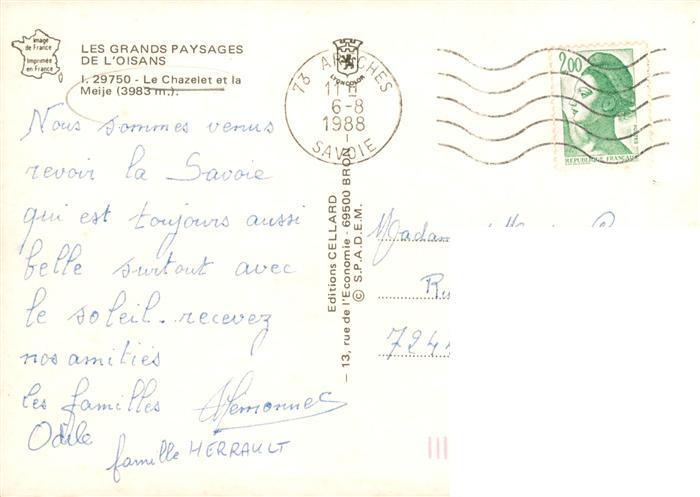 Image
de France
Imprimée
en France
LES GRANDS PAYSAGES
DE L'OISANS
I. 29750 - Le Chazelet et la
Meije (3983 m.).
Nous sommes venus
revoir la Savoie
qui est toujours aussi
belle surtout avec
le soleil. recevez
nos amitiés
les familles
Odile
famille HERRAULT
LYONCOLOR
Editions CELLARD
- 13, rue de l'Economie - 69500 BRON -
© S.P.A.D.E.M.
73
11 H
6-8
1988
SAVOIE
2,00
REPUBLIQUE FRANÇAISE
Madam
Ru
724